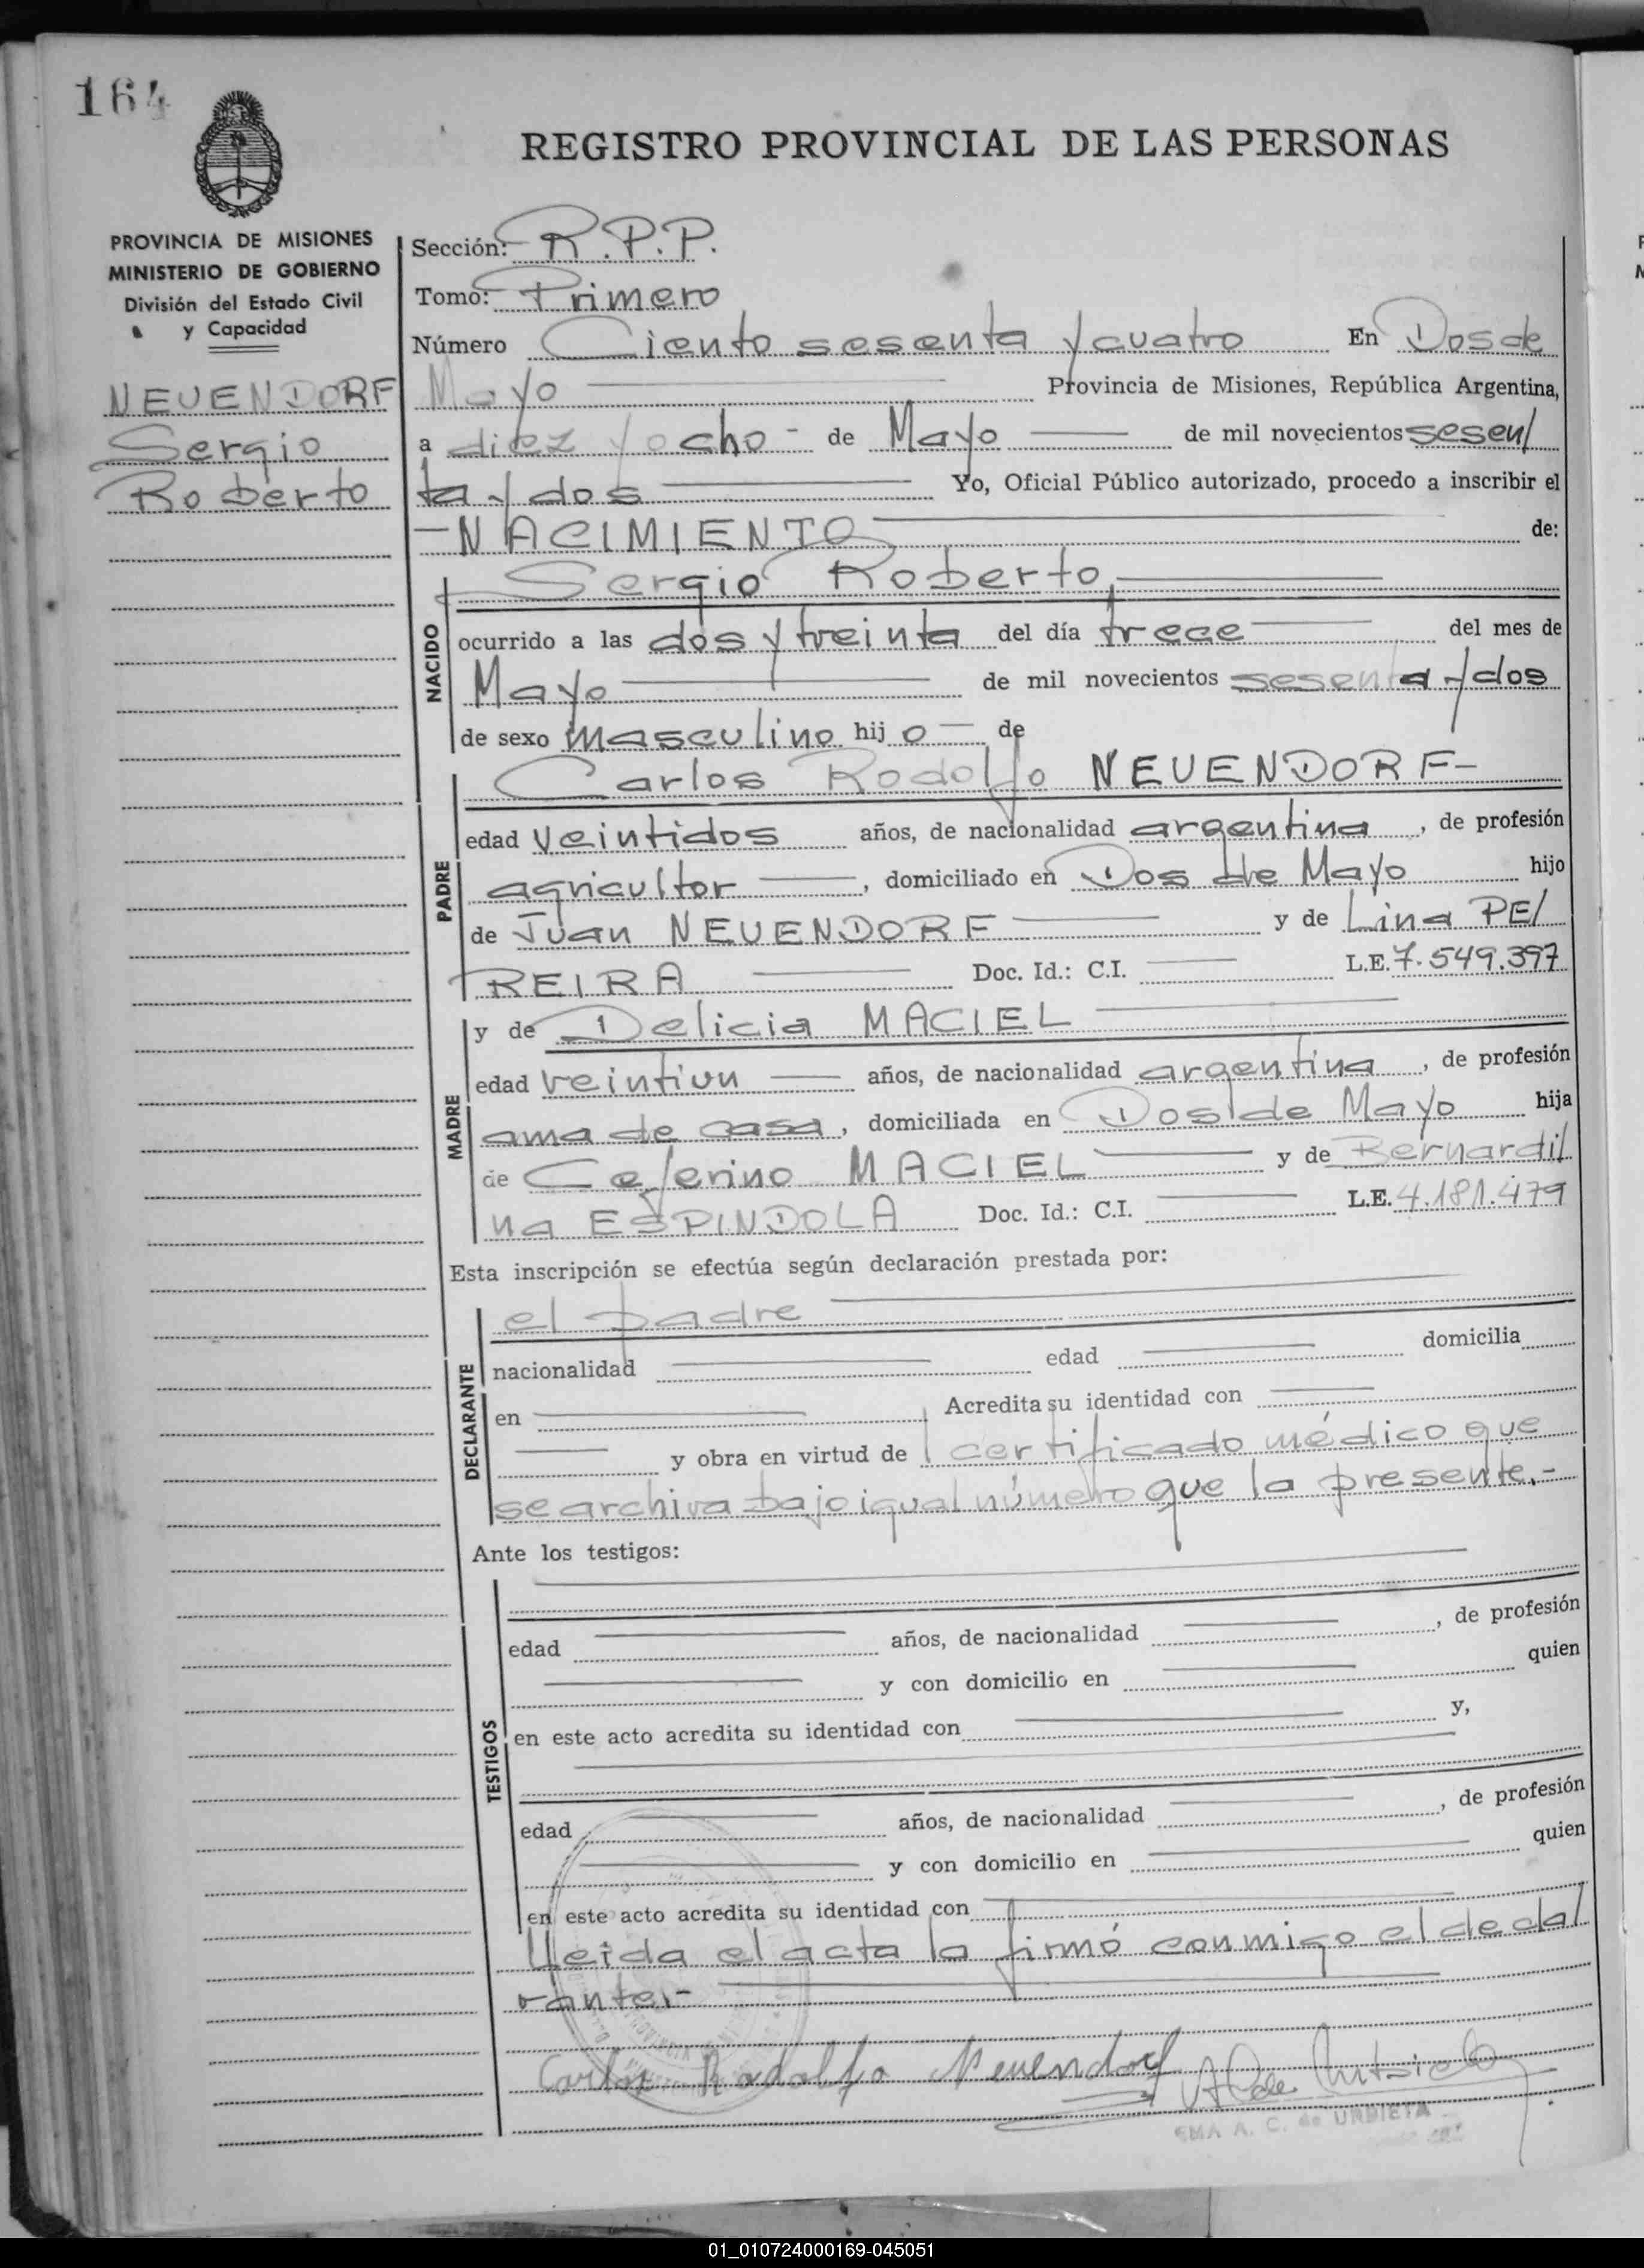 164
REGISTRO PROVINCIAL DE LAS PERSONAS
PROVINCIA DE MISIONES
MINISTERIO DE GOBIERNO
División del Estado Civil
y Capacidad
NEUENDORF
Sergio
Roberto
Sección: R.P.P.
Tomo: Primero
Número Ciento sesenta y cuatro En Dos de
Mayo Provincia de Misiones, República Argentina,
a diez y ocho - de Mayo de mil novecientos sesen/
ta y dos Yo, Oficial Público autorizado, procedo a inscribir el
- NACIMIENTO de:
Sergio Roberto,
NACIDO
ocurrido a las dos y treinta del día trece del mes de
Mayo de mil novecientos sesenta y dos
de sexo masculino hijo de
Carlos Rodolfo NEUENDORF-
PADRE
edad veintidos años, de nacionalidad argentina, de profesión
agricultor, domiciliado en Dos de Mayo hijo
de Juan NEUENDORF y de Lina PE/
REIRA Doc. Id.: C.I. L.E. 7.549.397
y de Delicia MACIEL
MADRE
edad veintiun años, de nacionalidad argentina, de profesión
ama de casa, domiciliada en Dos de Mayo hija
de Ceferino MACIEL y de Bernardi/
na ESPINDOLA Doc. Id.: C.I. L.E. 4.181.479
Esta inscripción se efectúa según declaración prestada por:
el padre
DECLARANTE
nacionalidad edad domicilia
en Acredita su identidad con
y obra en virtud de certificado médico que
se archiva bajo igual número que la presente.-
Ante los testigos:
TESTIGOS
edad años, de nacionalidad , de profesión
y con domicilio en quien
en este acto acredita su identidad con y,
edad años, de nacionalidad , de profesión
y con domicilio en quien
en este acto acredita su identidad con
Leida el acta la firmó conmigo el decla/
rante.-
Carlos Rodolfo Neuendorf
EMA A. C. de URBIETA
01_010724000169-045051